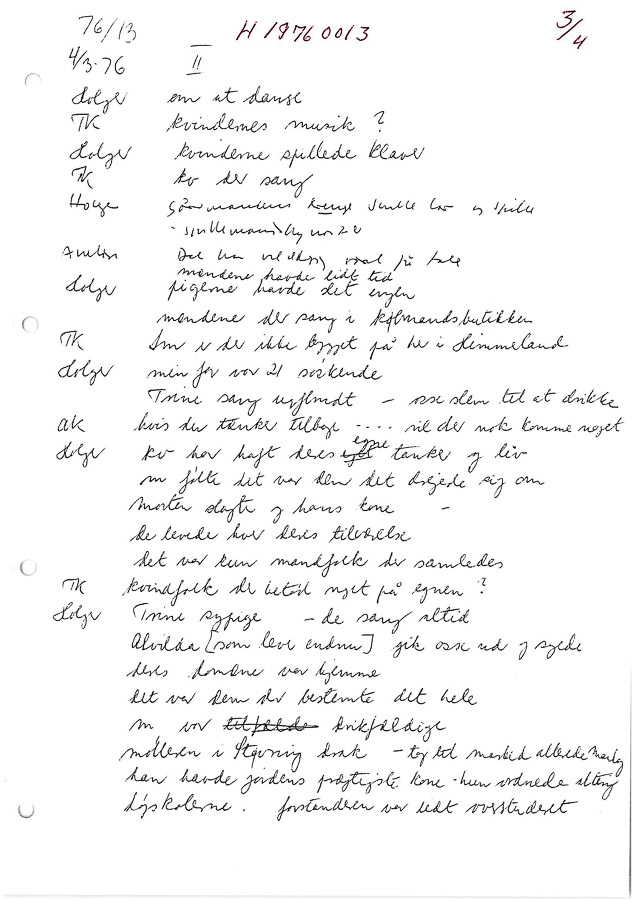 76/13 H 19760013 3/4
4/3-76 II
Holger om at danse
TK kvindernes musik ?
Holger kvinderne spillede klaver
TK kv der sang
Holger gårmandens
- spillemand
Anton Det har vel aldrig været på tale
mændene havde lidt tid
Holger pigerne havde det ingen
mændene der sang i købmandsbutikken
TK Im er der ikke bygget på her i Himmerland
Holger min far var 21 søskende
Trine sang ugfl - osse slem til at drikke
AK hvis du tænker tilbage .... vil der nok komme noget
Holger kv har haft deres egne tanker og liv
m følte det var dem det drejede sig om
Morten slagte og hans kone -
de levede hver deres tilværelse
det var kun mandfolk der samledes
TK kvindfolk der betød noget på egnen ?
Holger Trine sypige - de sang altid
Alvilda [som lever endnu] gik osse ud og syede
deres domæne var hjemme
det var dem der bestemte det hele
m var tilfælde drikfældige
mølleren i Støvring drak - tog til marked allerede mandag
han havde jordens prægtigste kone - hun ordnede alting
højskolerne . forstanderen var lidt overstuderet